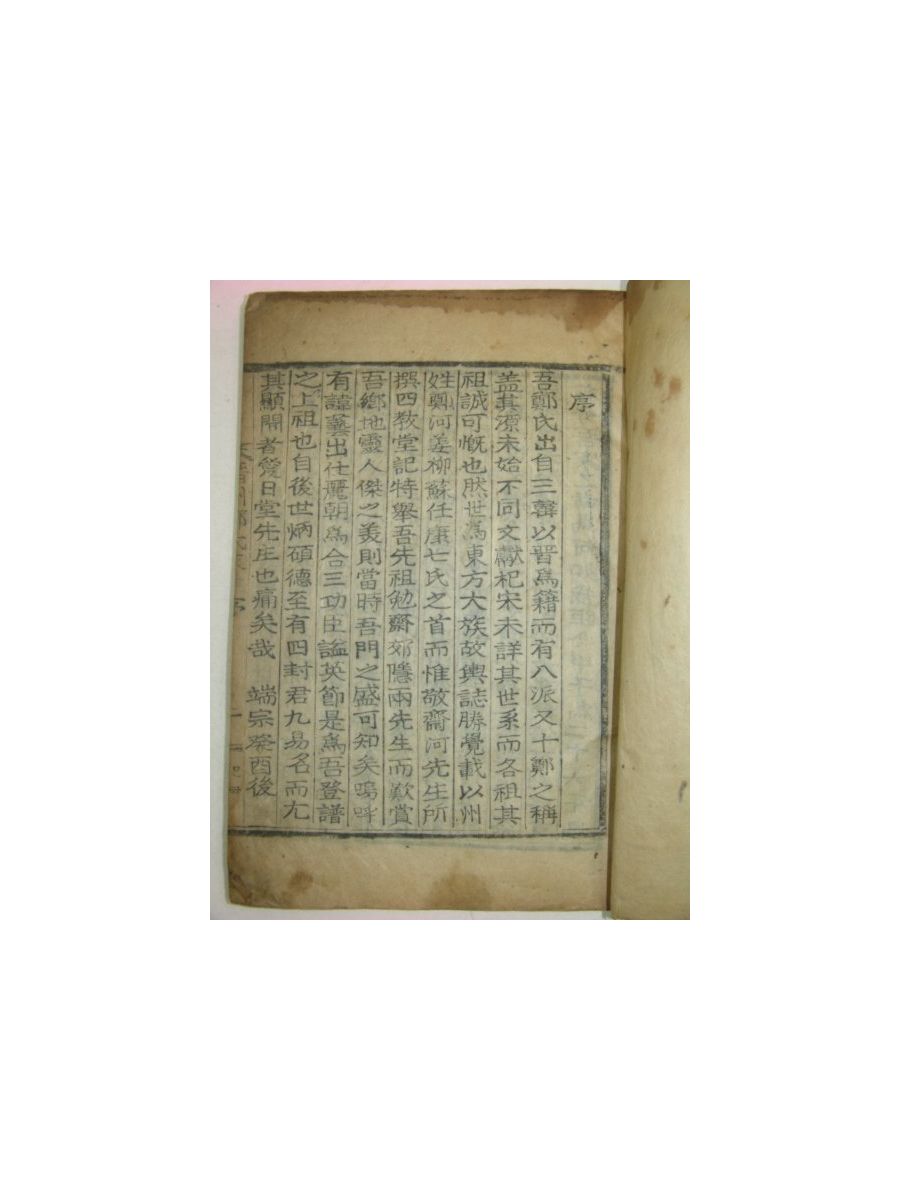 序
吾鄭氏出自三韓以晋爲籍而有八派又十鄭之稱
盖其源未始不同文獻杞宋未詳其世系而各祖其
祖誠可慨也然世爲東方大族故輿誌勝覺載以州
姓鄭河姜柳蘇任康七氏之首而惟敬齋河先生所
撰四敎堂記特舉吾先祖勉齋郊隱兩先生而歎賞
吾鄉地靈人傑之美則當時吾門之盛可知矣嗚呼
有諱藝出仕麗朝爲合三功臣謚英節是爲吾登譜
之上祖也自後世炳碩德至有四封君九易名而尢
其顯閘者愛日堂先庄也痛矣哉 端宗癸酉後